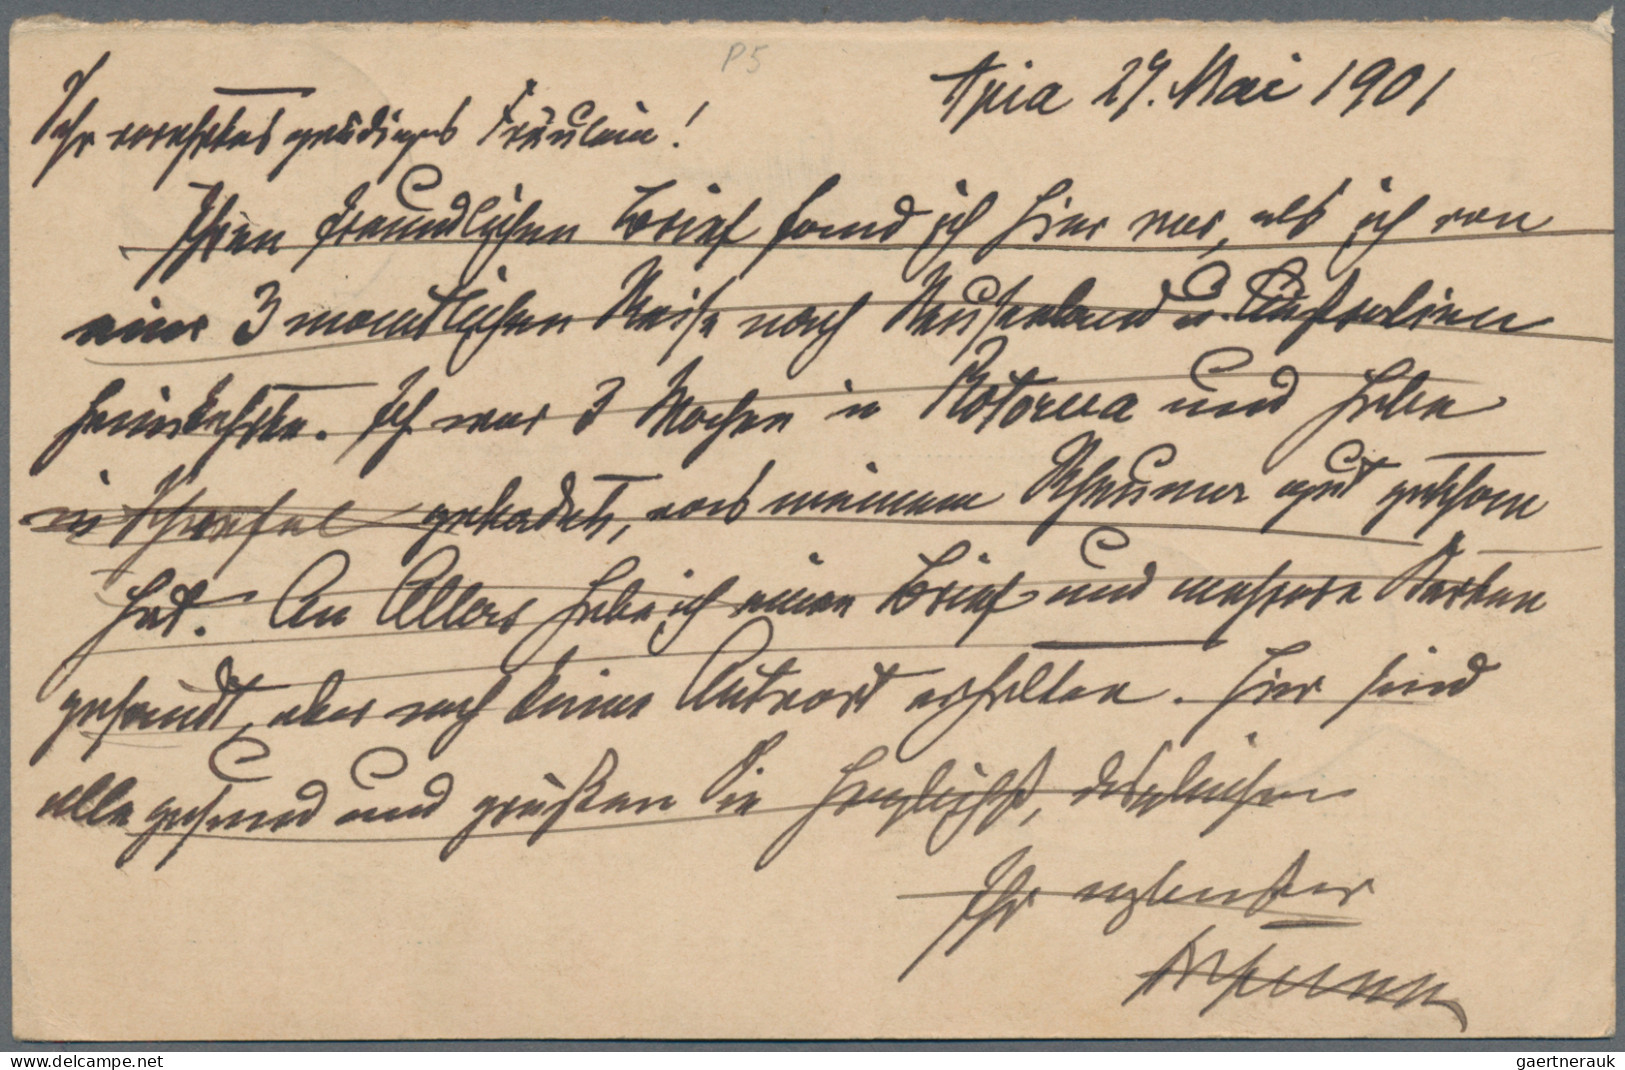 P5
Apia 27. Mai 1901
Sehr verehrtes gnädiges Fräulein!
Ihren freundlichen Brief fand ich hier vor, als ich von
einer 3 monatlichen Reise nach Neuseeland u. Australien
heimkehrte. Ich war 3 Wochen in Rotorua und habe
in Schwefel gebadet, was meinem Rheuma gut gethan
hat. An Allers habe ich einen Brief und mehrere Karten
gesandt, aber noch keine Antwort erhalten. Hier sind
alle gesund und grüßen Sie herzlichst, desgleichen
Ihr ergebenster
delcampe.net
gaertnerauk